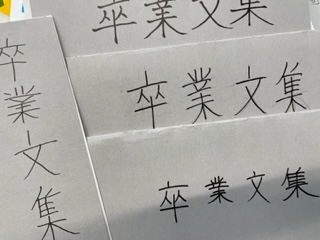 卒業文集
卒業文集
卒業文集
卒業文集